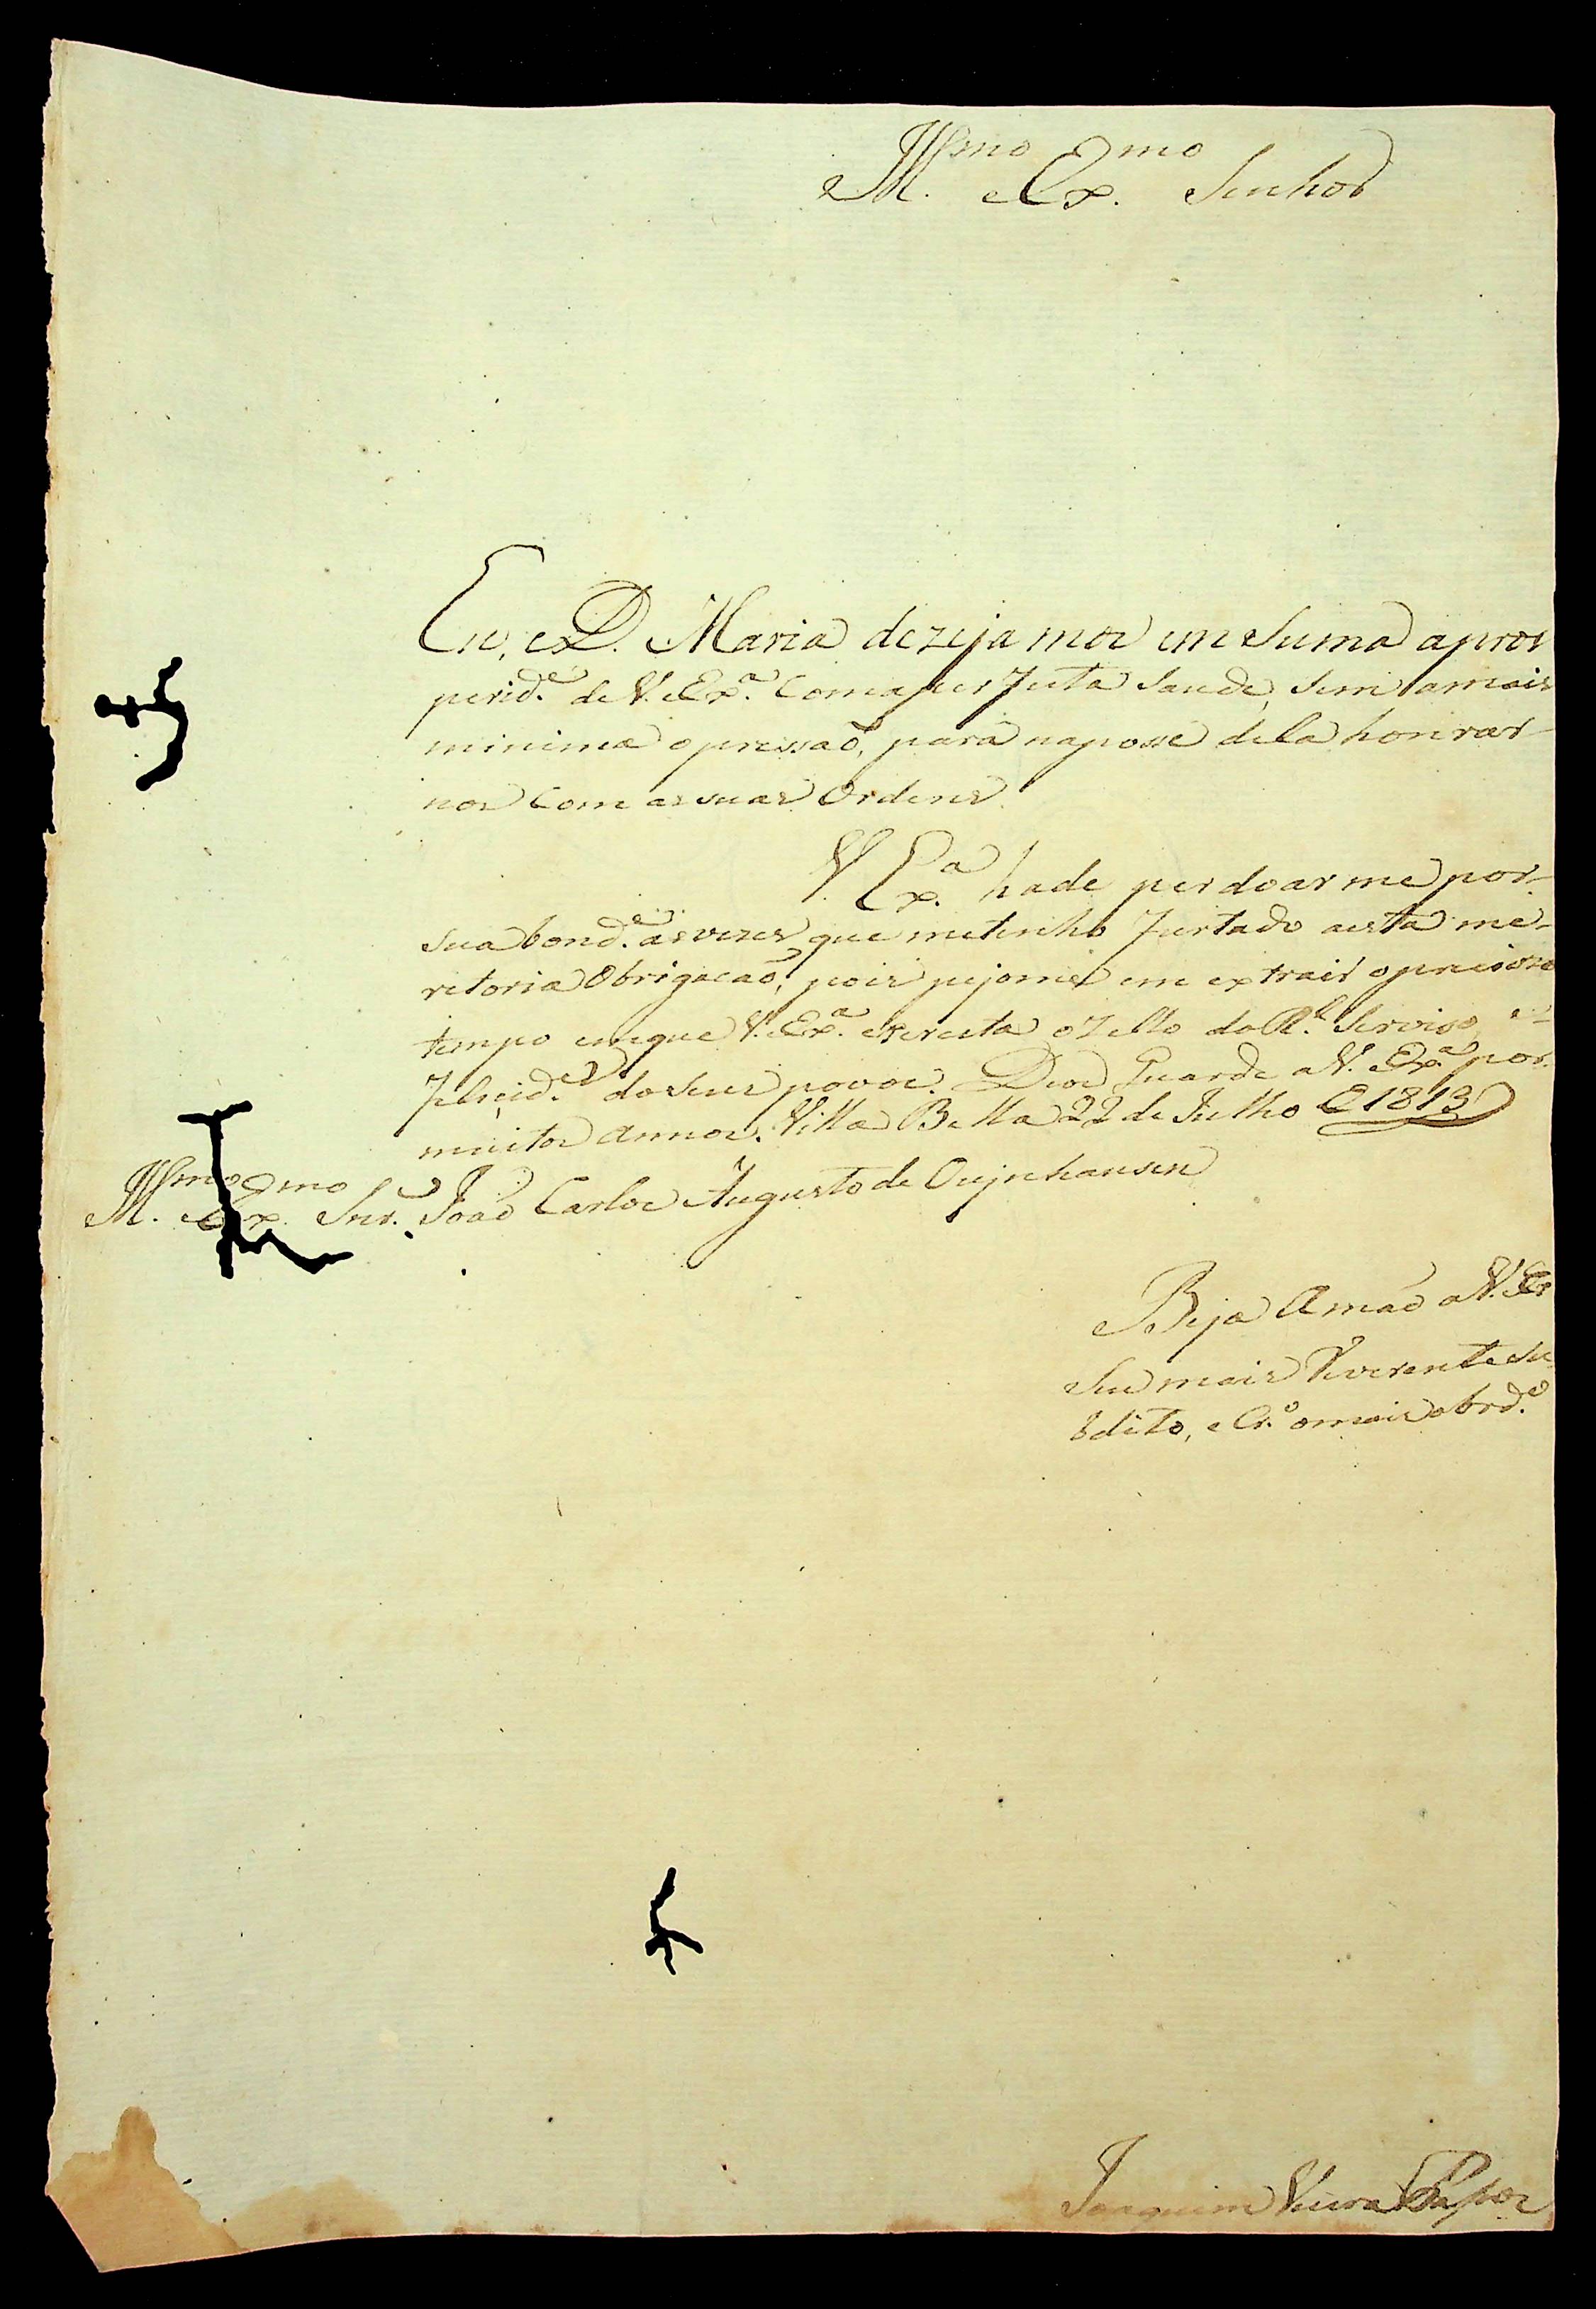 Illmo. Exmo. Senhor
Eu, e D. Maria dezejamos em suma a pros
perid.e de V. Ex.a com a perfeita saude, sem a mais
minima opressaõ, para na posse dela honrar-
nos com as suas Ordens.
V. Ex.a hade perdoarme por
sua bond.e as vezes que me tenho furtado a esta me-
retoria Obrigacaõ, pois pejome em extrair o preciozo
tempo em que V. Ex.a exercita o Zello do R.l Serviso, e
felecid.es dos seus povos. Deos Guarde a V. Ex.a por
muitos annos. Villa Bella 22 de Julho @ 1813
Illmo. Exmo. Snr. Joaõ Carlos Augusto de Oeynhausen
Beja a maõ a V. Ex
Seu mais Reverente Su
bdito, e Cr.o o mais obrd.o
Joaquim Vieira Passos